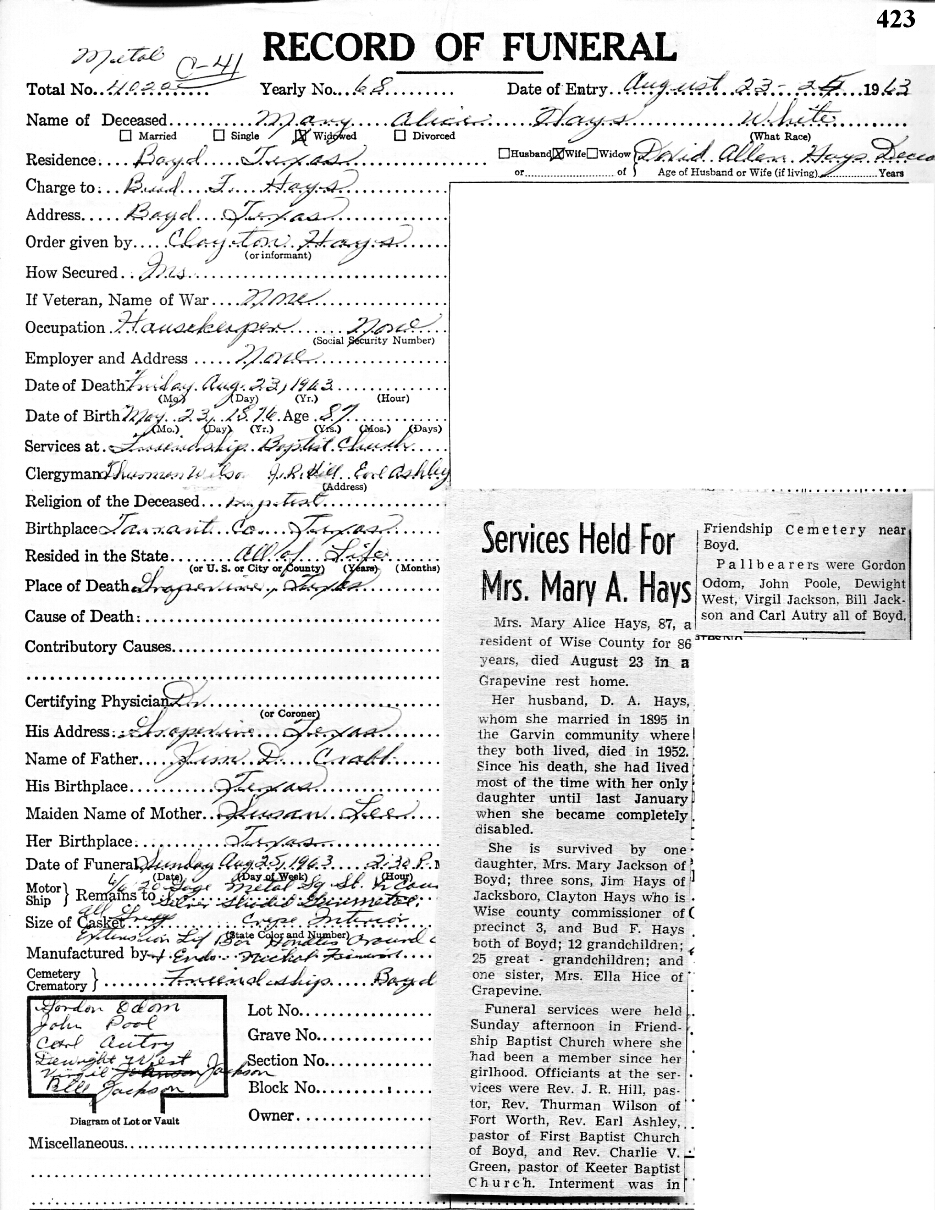 423
RECORD OF FUNERAL
Metal C-41
Total No. Yearly No. 68 Date of Entry August 23-25 1963
Name of Deceased Mary Alice Hays White
☐ Married ☐ Single ☒ Widowed ☐ Divorced (What Race)
Residence: Boyd Texas ☐ Husband ☒ Wife ☐ Widow David Allen Hays
or of Age of Husband or Wife (if living) Years
Charge to: Bud F. Hays
Address Boyd Texas
Order given by Clayton Hays
(or informant)
How Secured Ins
If Veteran, Name of War None
Occupation Housekeeper None
(Social Security Number)
Employer and Address None
Date of Death Friday Aug. 23, 1963
(Mo.) (Day) (Yr.) (Hour)
Date of Birth May 23, 1876 Age 87
(Mo.) (Day) (Yr.) (Yrs.) (Mos.) (Days)
Services at Friendship Baptist Church
Clergyman Thurman Wilson J.R. Hill Earl Ashley
(Address)
Religion of the Deceased Baptist
Birthplace Tarrant Co. Texas
Resided in the State all of Life
(or U. S. or City or County) (Years) (Months)
Place of Death Grapevine Texas
Cause of Death:
Contributory Causes
Certifying Physician Dr
(or Coroner)
His Address: Grapevine Texas
Name of Father Jim D. Crabb
His Birthplace Texas
Maiden Name of Mother Susan Lee
Her Birthplace: Texas
Date of Funeral Sunday Aug 25, 1963 2:30 P.M
(Date) (Day of Week) (Hour)
Motor Ship } Remains to 6/6 20 Gage Metal Sq
Silver
Size of Casket Crepe Interior
(State Color and Number)
Extension
Manufactured by
Cemetery Crematory } Friendship Boyd
Gordon Odom
John Pool
Carl Autry
Dewight West
Virgil Johnson Jackson
Bill Jackson
Diagram of Lot or Vault
Lot No.
Grave No.
Section No.
Block No.
Owner
Miscellaneous
Services Held For
Mrs. Mary A. Hays
Mrs. Mary Alice Hays, 87, a
resident of Wise County for 86
years, died August 23 in a
Grapevine rest home.
Her husband, D. A. Hays,
whom she married in 1895 in
the Garvin community where
they both lived, died in 1952.
Since his death, she had lived
most of the time with her only
daughter until last January
when she became completely
disabled.
She is survived by one
daughter, Mrs. Mary Jackson of
Boyd; three sons, Jim Hays of
Jacksboro, Clayton Hays who is
Wise county commissioner of
precinct 3, and Bud F. Hays
both of Boyd; 12 grandchildren;
25 great - grandchildren; and
one sister, Mrs. Ella Hice of
Grapevine.
Funeral services were held
Sunday afternoon in Friend-
ship Baptist Church where she
had been a member since her
girlhood. Officiants at the ser-
vices were Rev. J. R. Hill, pas-
tor, Rev. Thurman Wilson of
Fort Worth, Rev. Earl Ashley,
pastor of First Baptist Church
of Boyd, and Rev. Charlie V.
Green, pastor of Keeter Baptist
Church. Interment was in
Friendship Cemetery near
Boyd.
Pallbearers were Gordon
Odom, John Poole, Dewight
West, Virgil Jackson, Bill Jack-
son and Carl Autry all of Boyd.